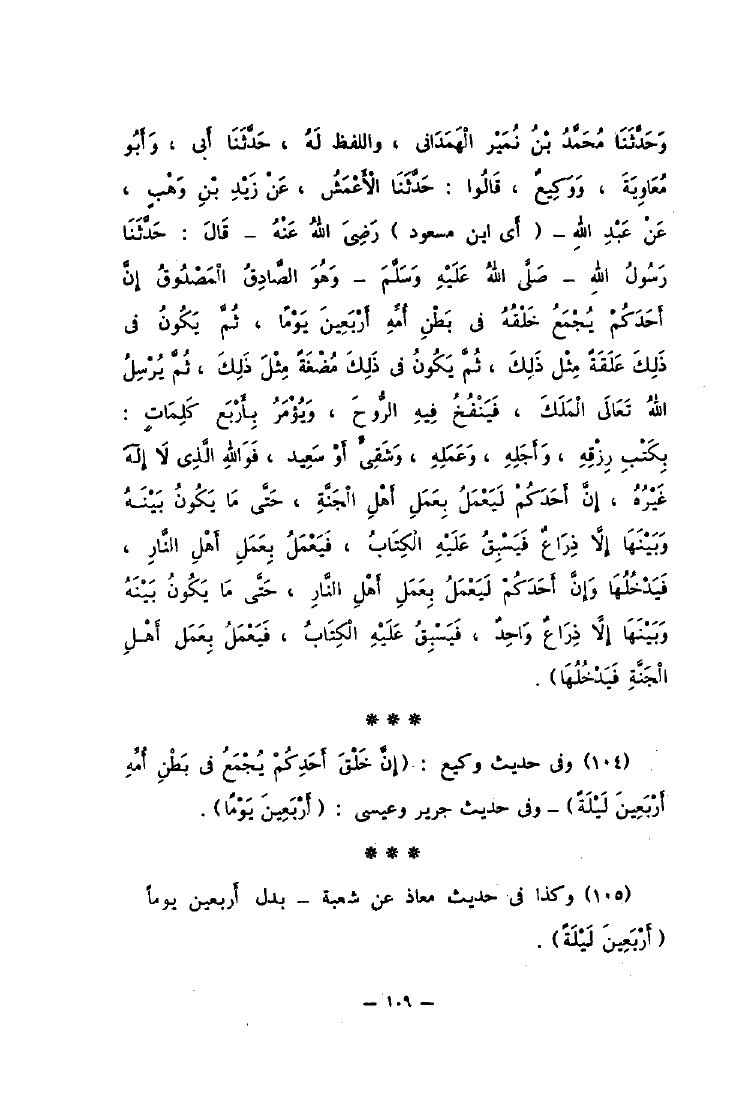 وَحَدَّثَنَا مُحَمَّدُ بْنُ نُمَيْرِ الْهَمَدَانِى ، واللفظ لَهُ ، حَدَّثَنَا أَبِى ، وَأَبُو
مُعَاوِيَةَ ، وَوَكِيعٌ ، قَالُوا : حَدَّثَنَا الْأَعْمَشُ ، عَنْ زَيْدِ بْنِ وَهْبٍ ،
عَنْ عَبْدِ اللهِ ــ ( أى ابن مسعود ) رَضِىَ اللهُ عَنْهُ ــ قَالَ : حَدَّثَنَا
رَسُولُ اللهِ ــ صَلَّى اللهُ عَلَيْهِ وَسَلَّمَ ــ وَهُوَ الصَّادِقُ الْمَصْدُوقُ إِنَّ
أَحَدَكُمْ يُجْمَعُ خَلْقُهُ فِى بَطْنِ أُمِّهِ أَرْبَعِينَ يَوْمًا ، ثُمَّ يَكُونُ فِى
ذَلِكَ عَلَقَةً مِثْلَ ذَلِكَ ، ثُمَّ يَكُونُ فِى ذَلِكَ مُضْغَةً مِثْلَ ذَلِكَ ، ثُمَّ يُرْسِلُ
اللهُ تَعَالَى الْمَلَكَ ، فَيَنْفُخُ فِيهِ الرُّوحَ ، وَيُؤْمَرُ بِأَرْبَعِ كَلِمَاتٍ :
بِكَتْبِ رِزْقِهِ ، وَأَجَلِهِ ، وَعَمَلِهِ ، وَشَقِىٌّ أَوْ سَعِيد ، فَوَاللهِ الَّذِى لَا إِلَهَ
غَيْرُهُ ، إِنَّ أَحَدَكُمْ لَيَعْمَلُ بِعَمَلِ أَهْلِ الْجَنَّةِ ، حَتَّى مَا يَكُونُ بَيْنَهُ
وَبَيْنَهَا إِلَّا ذِرَاعٌ فَيَسْبِقُ عَلَيْهِ الْكِتَابُ ، فَيَعْمَلُ بِعَمَلِ أَهْلِ النَّارِ ،
فَيَدْخُلُهَا وَإِنَّ أَحَدَكُمْ لَيَعْمَلُ بِعَمَلِ أَهْلِ النَّارِ ، حَتَّى مَا يَكُونُ بَيْنَهُ
وَبَيْنَهَا إِلَّا ذِرَاعٌ وَاحِدٌ ، فَيَسْبِقُ عَلَيْهِ الْكِتَابُ ، فَيَعْمَلُ بِعَمَلِ أَهْلِ
الْجَنَّةِ فَيَدْخُلُهَا) .
* * *
(١٠٤) وفى حديث وكيع : (إِنَّ خَلْقَ أَحَدِكُمْ يُجْمَعُ فِى بَطْنِ أُمِّهِ
أَرْبَعِينَ لَيْلَةً) ــ وفى حديث جرير وعيسى : (أَرْبَعِينَ يَوْمًا) .
* * *
(١٠٥) وكذا فى حديث معاذ عن شعبة ــ بدل أربعين يوماً
(أَرْبَعِينَ لَيْلَةً) .
ــ ١٠٩ ــ